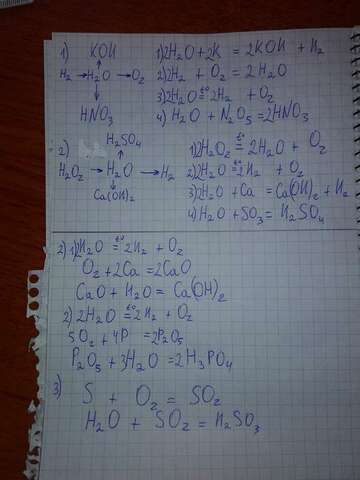 1) KOH
H₂ → H₂O → O₂
HNO₃
1) 2H₂O + 2K = 2KOH + H₂
2) 2H₂ + O₂ = 2H₂O
3) 2H₂O =t° 2H₂ + O₂
4) H₂O + N₂O₅ = 2HNO₃
2) H₂SO₄
H₂O₂ → H₂O → H₂
Ca(OH)₂
1) 2H₂O₂ =t° 2H₂O + O₂
2) 2H₂O =t° 2H₂ + O₂
3) 2H₂O + Ca = Ca(OH)₂ + H₂
4) H₂O + SO₃ = H₂SO₄
2) 1) 2H₂O =t° 2H₂ + O₂
O₂ + 2Ca = 2CaO
CaO + H₂O = Ca(OH)₂
2) 2H₂O =t° 2H₂ + O₂
5O₂ + 4P = 2P₂O₅
P₂O₅ + 3H₂O = 2H₃PO₄
3) S + O₂ = SO₂
H₂O + SO₂ = H₂SO₃